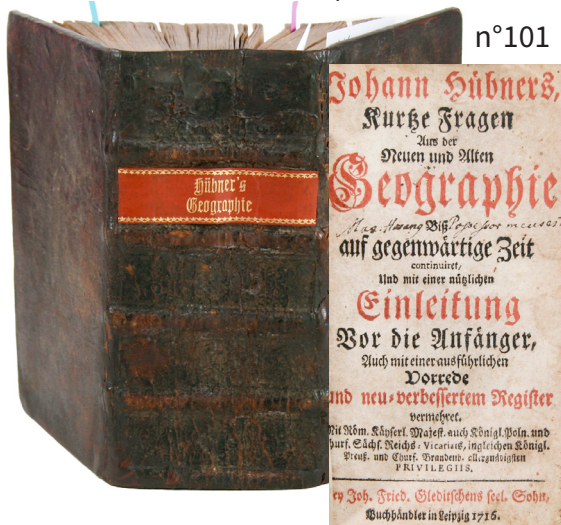 n°101
Hübner's
Geographie
Johann Hübners,
Kurtze Fragen
Aus der
Neuen und Alten
Geographie
Biß
auf gegenwärtige Zeit
continuiret,
Und mit einer nützlichen
Einleitung
Vor die Anfänger,
Auch mit einer ausführlichen
Vorrede
und neu-verbessertem Register
vermehret.
Mit Röm. Käyserl. Majest. auch Königl. Poln. und
hurf. Sächs. Reichs-Vicariats, ingleichen Königl.
Preuß. und Churf. Brandenb. allergnädigsten
PRIVILEGIIS.
ey Joh. Fried. Gleditschens seel. Sohn,
Buchhändler in Leipzig 1716.